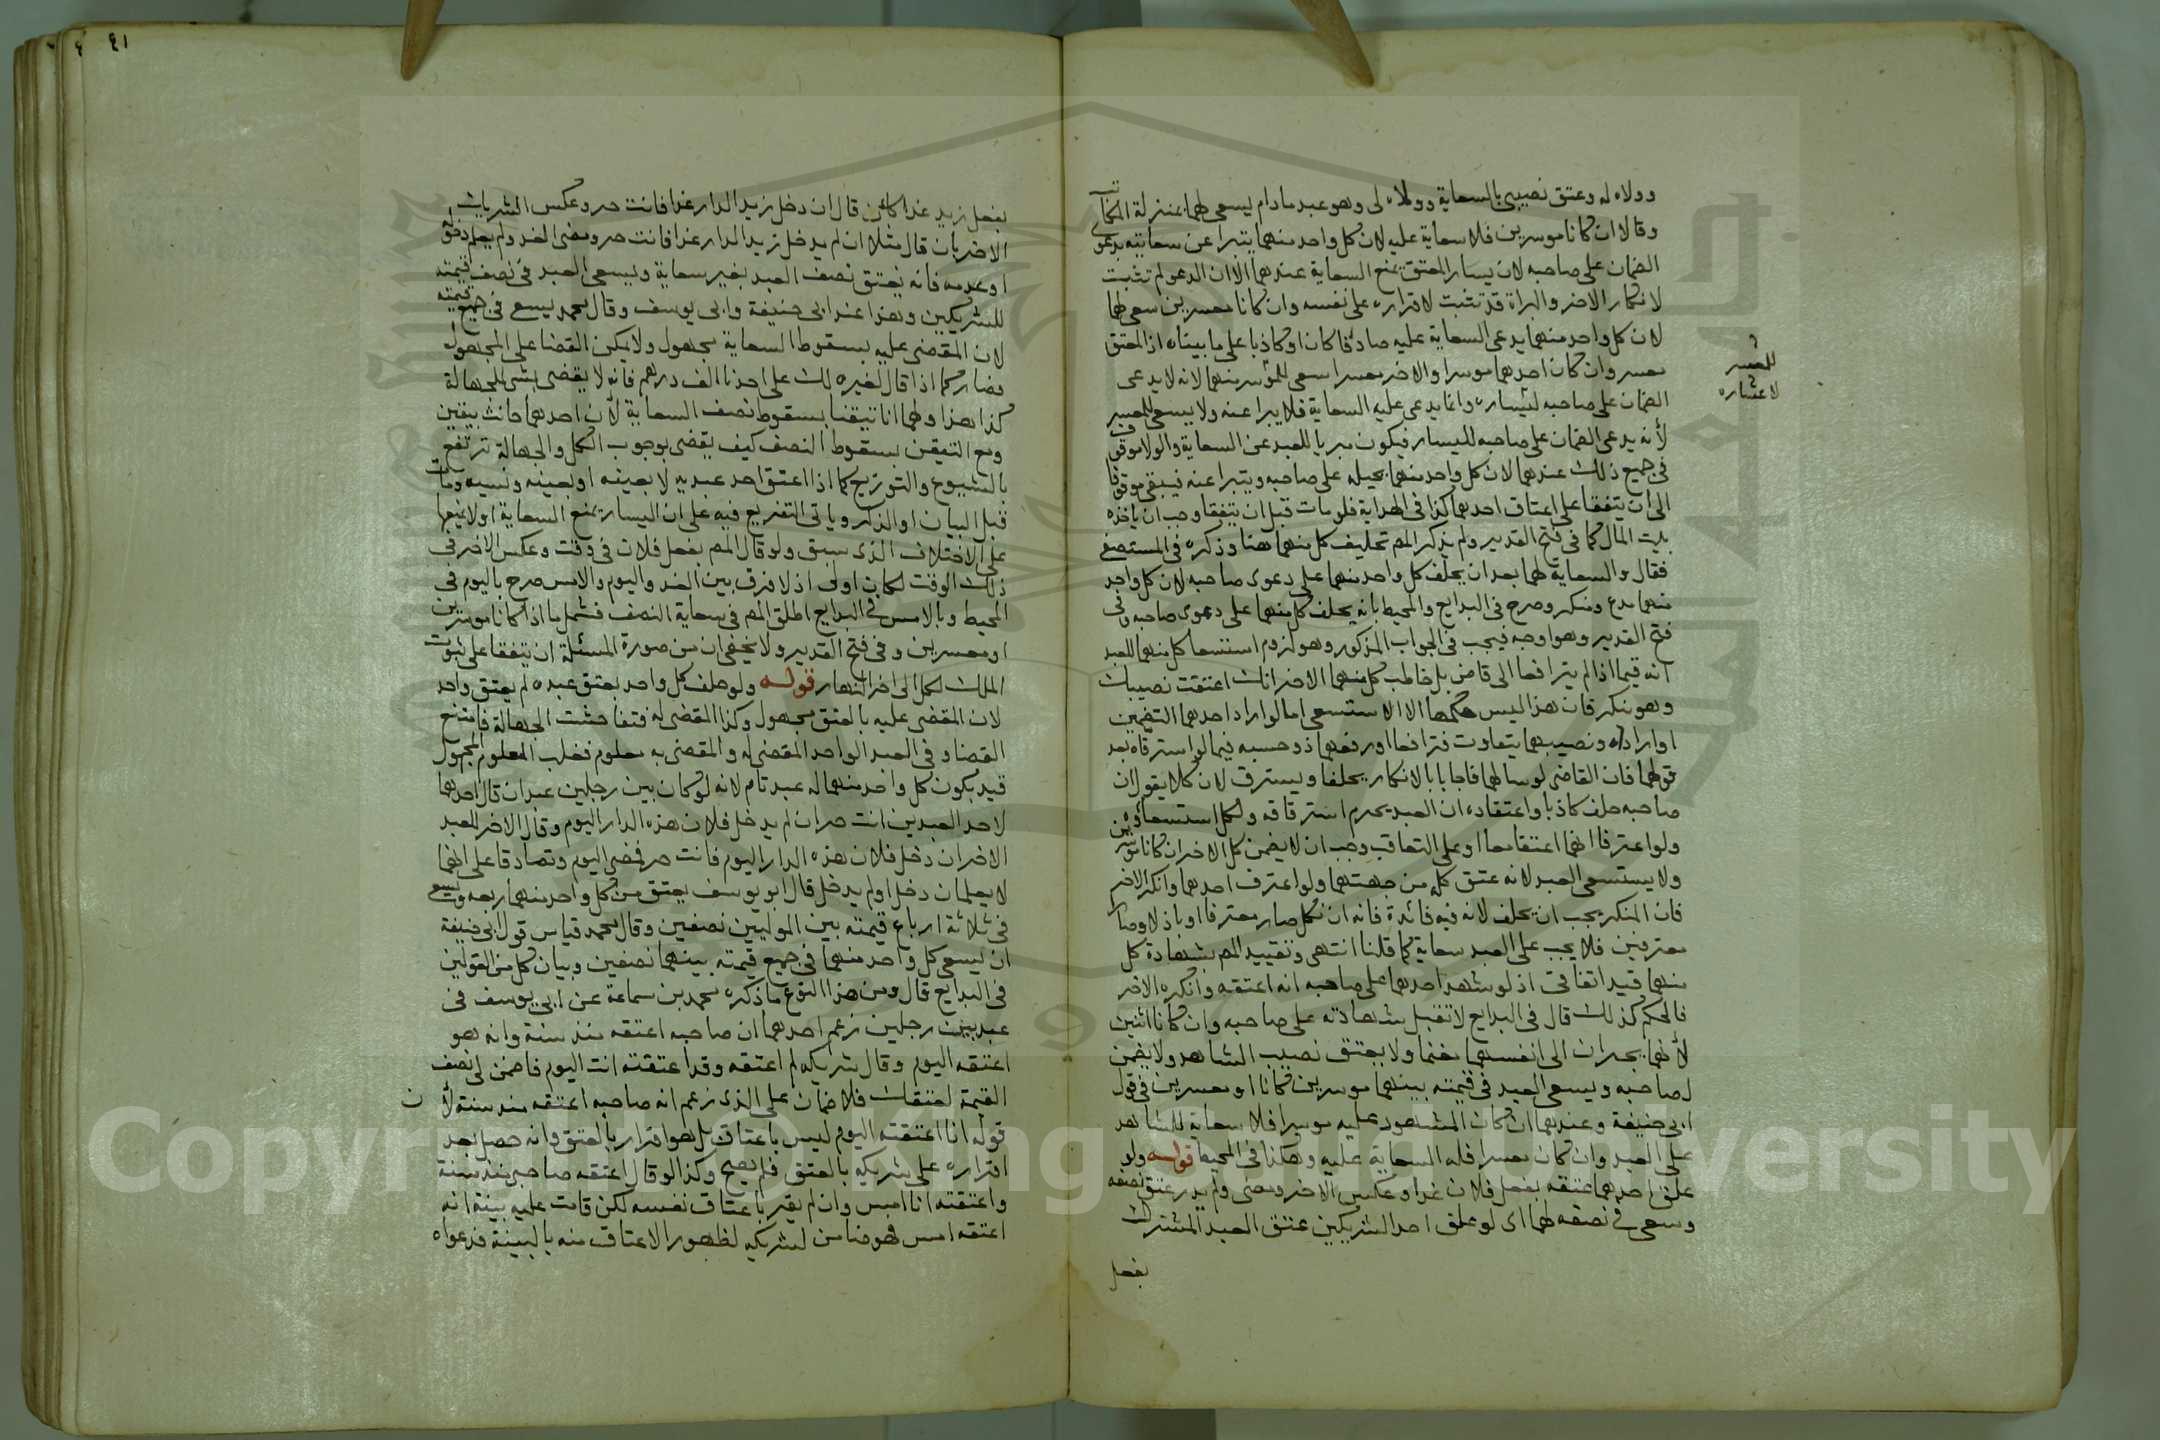 وولاه له وعتق نصيبي بالسعاية وولاه لى وهو عبد مادام يسعى لهما بمنزلة المكاتب
وقالا ان كانا موسرين فلا سعاية عليه لان كل واحد منهما يتبرا عن سعايته بدعوى
الضمان على صاحبه لان يسار المعتق يمنع السعاية عندهما الا ان الدعو لم تثبت
لانكار الاخر والبراة قد تثبت لاقراره على نفسه وان كانا معسرين سعى لهما
لان كل واحد منهما يدعى السعاية عليه صادقا كان او كاذبا على ما بيناه اذ المعتق
معسر وان كان احدهما موسرا والاخر معسرا سعى للموسر منهما لانه لا يدعى
الضمان على صاحبه ليساره وانما يدعى عليه السعاية فلا يبرا عنه ولا يسعى للمعسر
للمعسر
لاعساره
لأنه يدعى الضمان على صاحبه لليسار فيكون مبريا للعبد عن السعاية والولاموقوف
فى جميع ذلك عندهما لان كل واحد منهما يحيله على صاحبه ويتبرا عنه فيبقى موقوفا
الى ان يتفقا على اعتاق احدهما كذا فى الهداية فلو مات قبل ان يتفقا وجب ان ياخذه
بيت المال كما فى فتح القدير ولم يذكر المص تحليف كل منهما هنا وذكره فى المستصفى
فقال والسعاية لهما بعد ان يحلف كل واحد منهما على دعوى صاحبه لان كل واحد
منهما مدع ومنكر وصرح فى البدايع والمحيط بانه يحلف كل منهما على دعوى صاحبه وفى
فتح القدير وهو اوجه فيجب فى الجواب المذكور وهو لزوم استسعا كل منهما للعبد
انه فيما اذا لم يترافعا الى قاض بل خاطب كل منهما الاخر انك اعتقت نصيبك
وهو ينكر فان هذا ليس حكمها الا الاستسعى اما لو اراد احدهما التضمين
او اراداه ونصيبهما يتفاوت فترافعا او رفعهما ذو حسبه فيما لو استرقاه بعد
قولهما فان القاضى لو سالهما فاجابا بالانكار يحلفا ويسترق لان كلا يقول ان
صاحبه حلف كاذبا واعتقاده ان العبد يحرم استرقاقه ولكل استسعاوه
ولو اعترفا انهما اعتقا معا او على التعاقب وجب ان لا يضمن كل الاخر ان كانا موسرين
ولا يستسعى العبد لانه عتق كله من جهتهما ولو اعترف احدهما وانكر الاخر
فان المنكر يجب ان يحلف لانه فيه فائدة فانه ان نكل صار معترفا او باذلا وصارا
معترفين فلا يجب على العبد سعاية كما قلنا انتهى وتقييد المص بشهادة كل
منهما قيد اتفاقى اذ لو شهد احدهما على صاحبه انه اعتقه وانكره الاخر
فالحكم كذلك قال فى البدايع لا تقبل شهادته على صاحبه وان كانا اثنين
لأنهما يجران الى انفسهما مغنما ولا يعتق نصيب الشاهد ولا يضمن
لصاحبه ويسعى العبد فى قيمته بينهما موسرين كانا او معسرين فى قول
ابى حنيفة وعندهما ان كان المشهود عليه موسرا فلا سعاية للشاهد
على العبد وان كان معسرا فله السعاية عليه وهكذا فى المحيط قوله ولو
علق احدهما عتقه بفعل فلان غدا وعكس الاخر ومضى ولم يدر عتق نصفه
وسعى فى نصفه لهما اى لو علق احد الشريكين عتق العبد المشترك
بفعل
٤١
بفعل زيد غدا كأن قال ان دخل زيد الدار غدا فانت حر وعكس الشريك
الاخر بان قال مثلا ان لم يدخل زيد الدار غدا فانت حر ومضى الغد ولم يعلم دخوله
او عدمه فانه يعتق نصف العبد بغير سعاية ويسعى العبد فى نصف قيمته
للشريكين وهذا عند ابى حنيفة وابى يوسف وقال محمد يسعى فى جميع قيمته
لان المقضى عليه بسقوط السعاية مجهول ولا يمكن القضا على المجهول
فصار كما اذا قال لغيره لك على احدنا الف درهم فانه لا يقضى بشى للجهالة
كذا هذا ولهما انا تيقنا بسقوط نصف السعاية لأن احدهما حانث بيقين
ومع التيقن بسقوط النصف كيف يقضى بوجوب الكل والجهالة ترتفع
بالشيوع والتوزيع كما اذا اعتق احد عبديه لا بعينه او بعينه ونسيه ومات
قبل البيان او الذكر وياتى التفريع فيه على ان اليسار يمنع السعاية او لا يمنعها
على الاختلاف الذى سبق ولو قال المص بفعل فلان فى وقت وعكس الاخر فى
ذلك الوقت لكان اولى اذ لا فرق بين الغد واليوم والامس صرح باليوم فى
المحيط وبالامس فى البدايع اطلق المص فى سعاية النصف فشمل ما اذا كانا موسرين
او معسرين وفى فتح القدير ولا يخفى ان من صورة المسئلة ان يتفقا على ثبوت
الملك لكل الى اخر النهار قوله ولو حلف كل واحد بعتق عبده لم يعتق واحد
لان المقضى عليه بالعتق مجهول وكذا المقضى له فتفاحشت الجهالة فامتنع
القضا وفى العبد الواحد المقضى له والمقضى به معلوم فغلب المعلوم المجهول
قيد بكون كل واحد منهما له عبد تام لانه لو كان بين رجلين عبدان قال احدهما
لاحد العبدين انت حر ان لم يدخل فلان هذه الدار اليوم وقال الاخر للعبد
الاخر ان دخل فلان هذه الدار اليوم فانت حر فمضى اليوم وتصادقا على انهما
لا يعلمان دخل او لم يدخل قال ابو يوسف يعتق من كل واحد منهما ربعه ويسعى
فى ثلاثة ارباع قيمته بين الموليين نصفين وقال محمد قياس قول ابى حنيفة
ان يسعى كل واحد منهما فى جميع قيمته بينهما نصفين وبيان كل من القولين
فى البدايع قال ومن هذا النوع ما ذكره محمد بن سماعة عن ابى يوسف فى
عبد بين رجلين زعم احدهما ان صاحبه اعتقه منذ سنة وانه هو
اعتقه اليوم وقال شريكه لم اعتقه وقد اعتقته انت اليوم فاضمن لى نصف
القيمة لعتقك فلا ضمان على الذى زعم انه صاحبه اعتقه منذ سنة لأن
قوله انا اعتقته اليوم ليس باعتاق بل هو اقرار بالعتق وانه حصل بعد
اقراره على شريكه بالعتق فلم يصح وكذا لو قال اعتقه صاحبى منذ سنة
واعتقته انا امس وان لم يقر باعتاق نفسه لكن قامت عليه بينة انه
اعتقه امس فهو ضامن لشريكه لظهور الاعتاق منه بالبينة فدعواه
Copyright © King Saud University